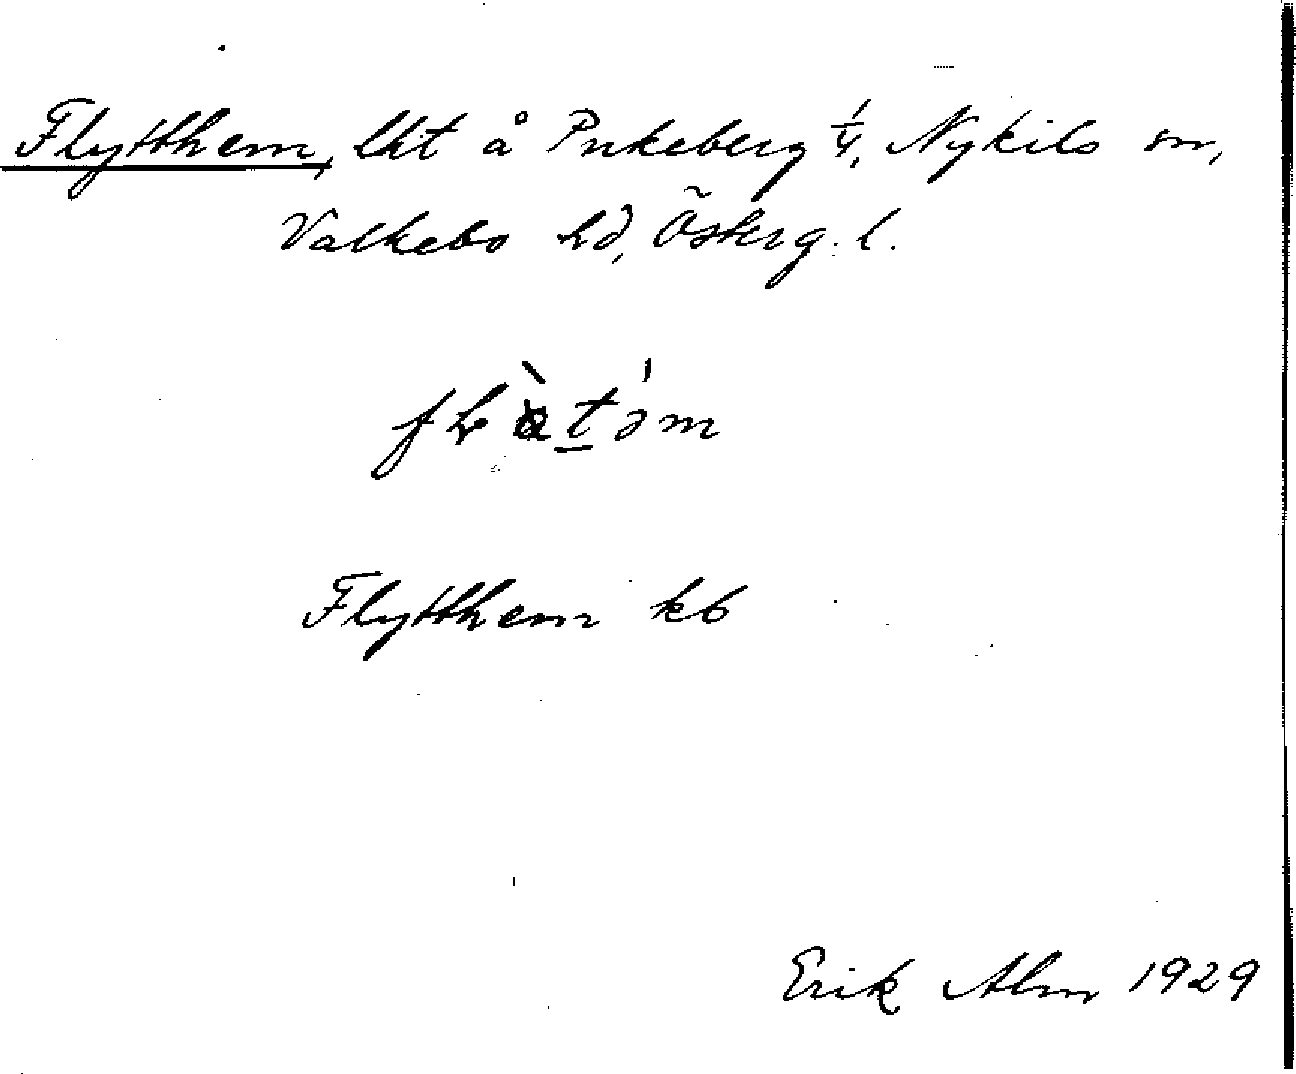 Flytthem, lht å Pukeberg 1/4, Nykils sn,
Valkebo hd, Österg. l.
Flytthem kb
Erik Alm 1929